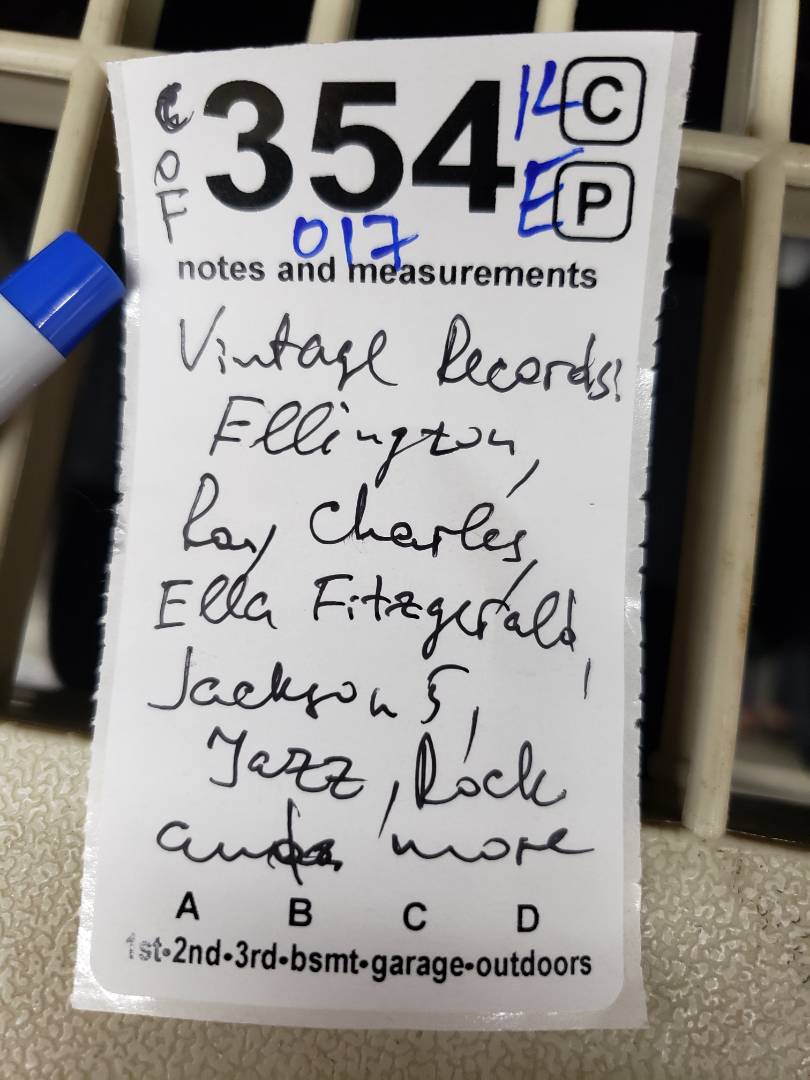 C 354 14 C
O
F E P
017
notes and measurements
Vintage Records!
Ellington,
Ray Charles,
Ella Fitzgerald,
Jackson 5,
Jazz, Rock
and more
A B C D
1st•2nd•3rd•bsmt•garage•outdoors